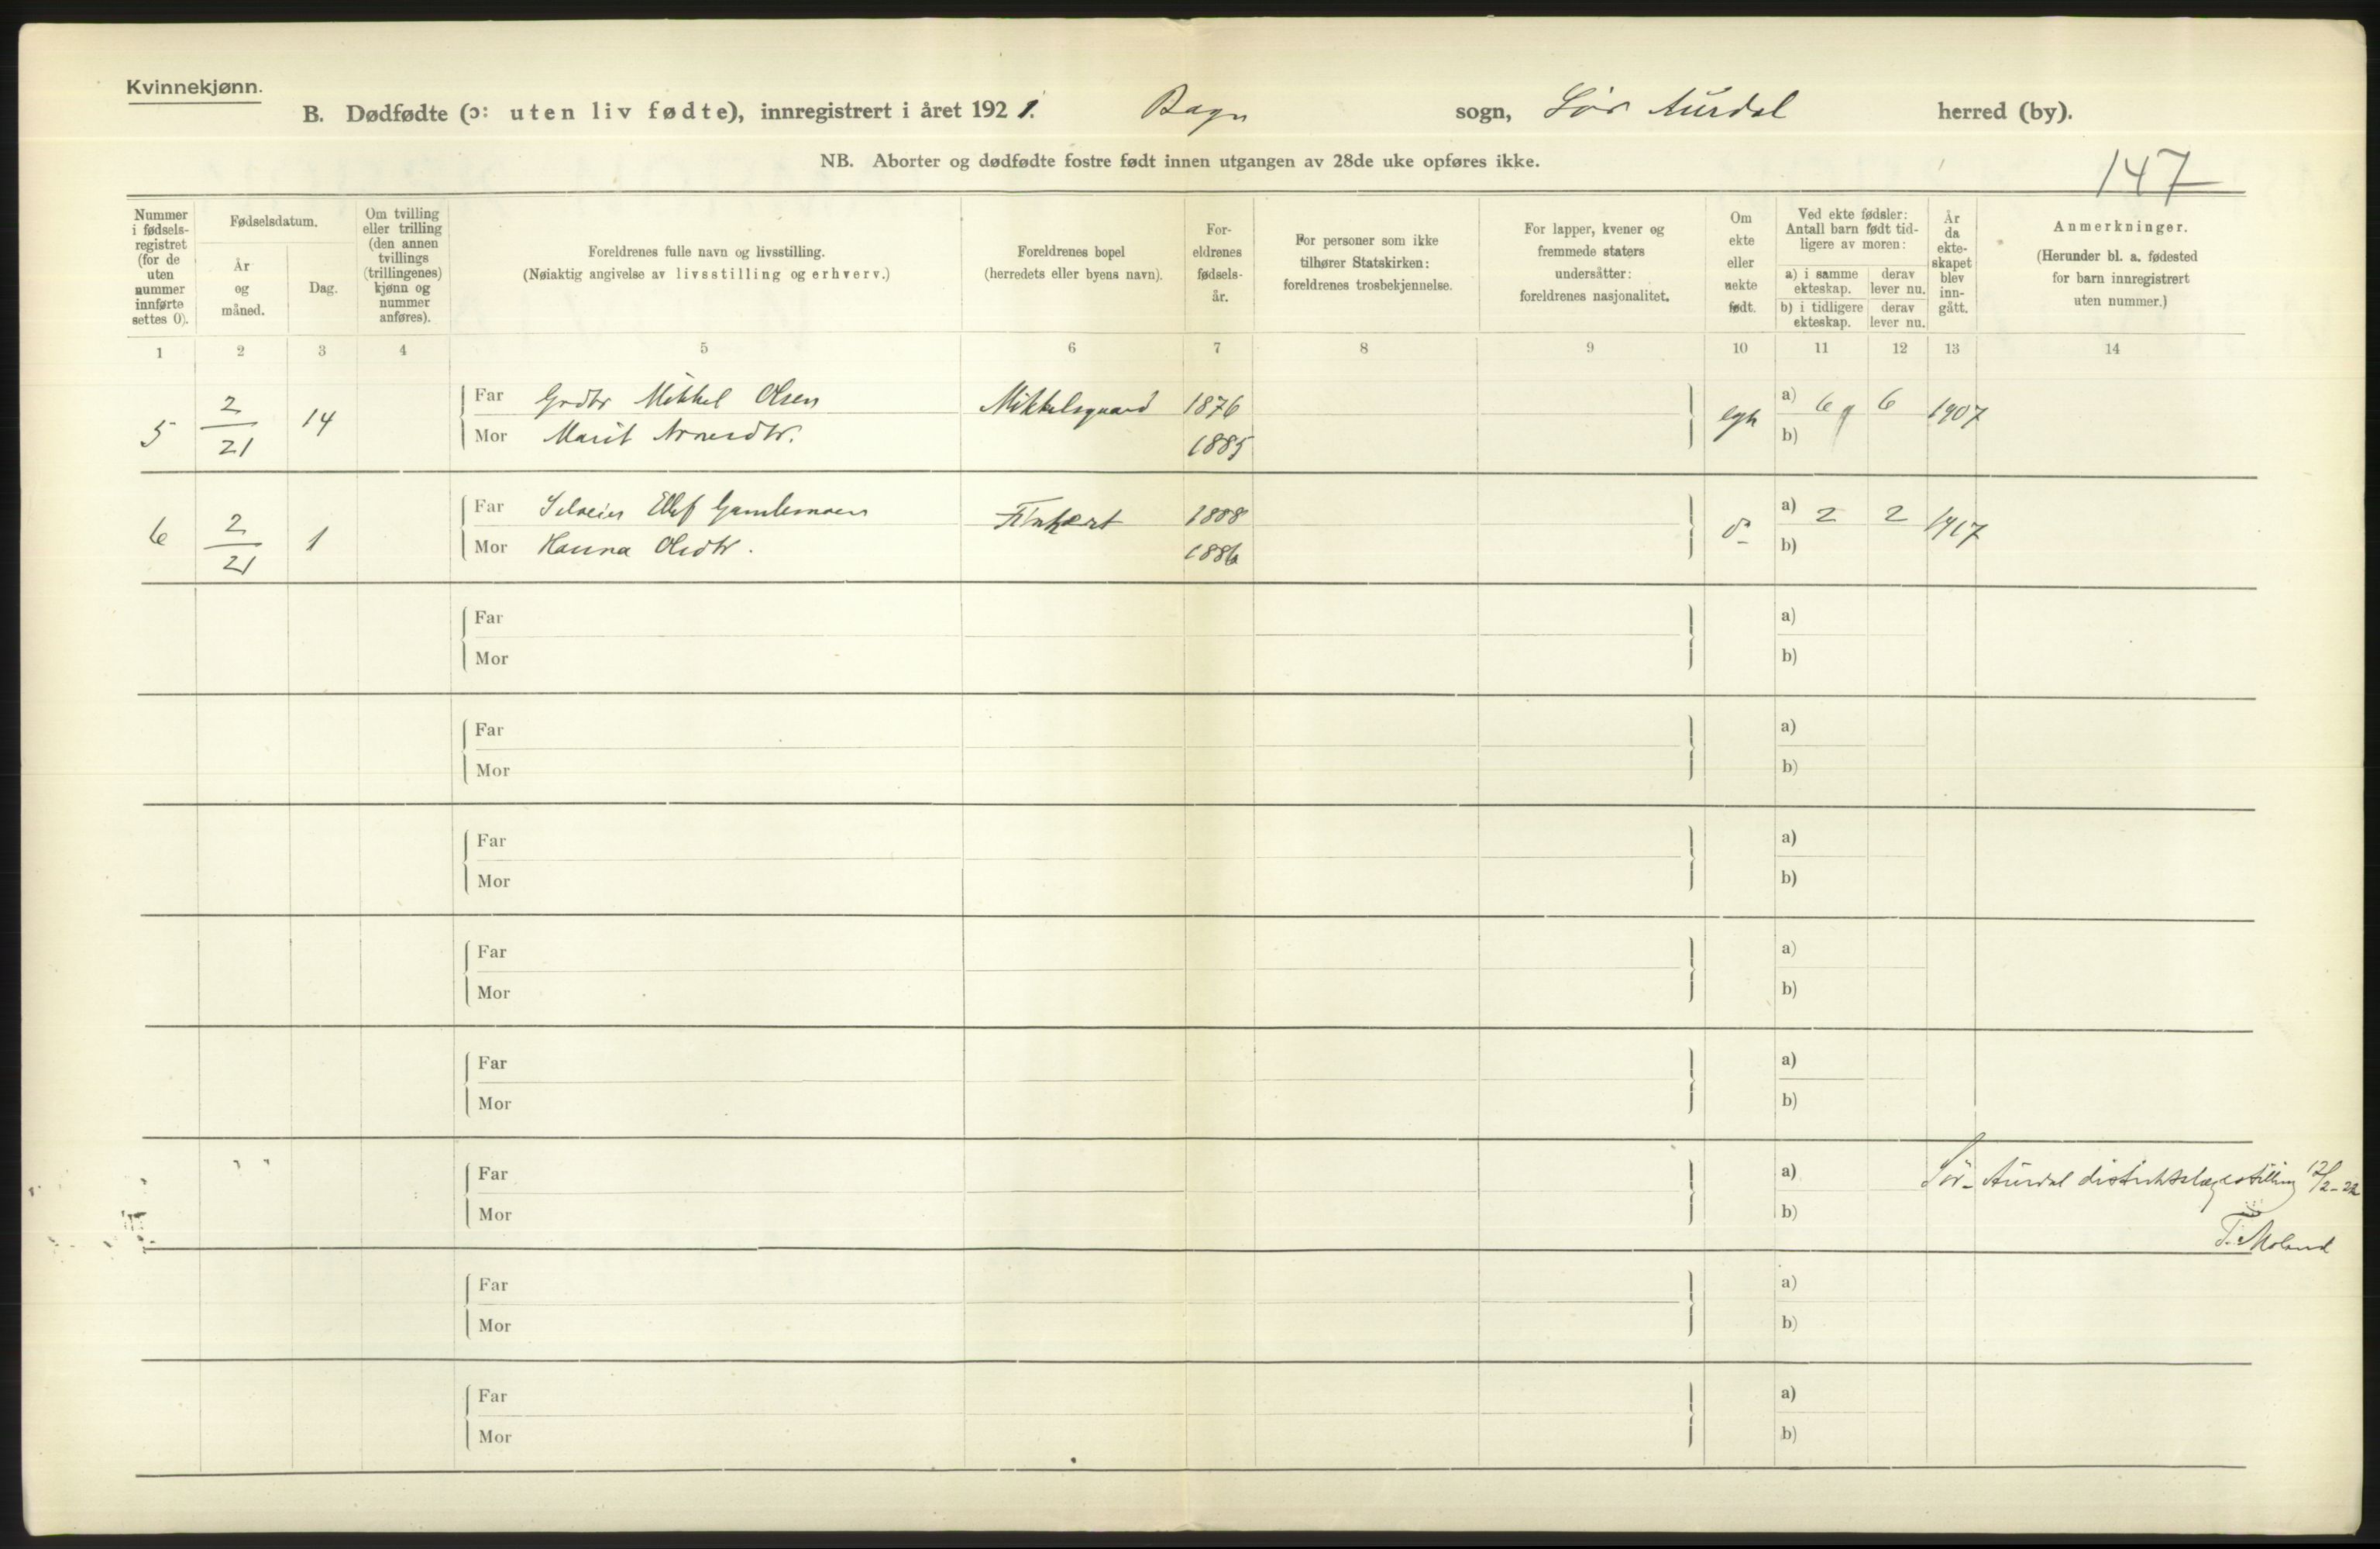 Kvinnekjønn.
B. Dødfødte (ɔ: uten liv fødte), innregistrert i året 1921. Bagn sogn, Sør Aurdal herred (by).
NB. Aborter og dødfødte fostre født innen utgangen av 28de uke opføres ikke.
147
Nummer i fødselsregistret (for de uten nummer innførte settes 0).
Fødselsdatum.
År og måned.
Dag.
Om tvilling eller trilling (den annen tvillings (trillingenes) kjønn og nummer anføres).
Foreldrenes fulle navn og livsstilling.
(Nøiaktig angivelse av livsstilling og erhverv.)
Foreldrenes bopel
(herredets eller byens navn).
Foreldrenes fødselsår.
For personer som ikke tilhører Statskirken: foreldrenes trosbekjennelse.
For lapper, kvener og fremmede staters undersåtter: foreldrenes nasjonalitet.
Om ekte eller uekte født.
Ved ekte fødsler: Antall barn født tidligere av moren:
a) i samme ekteskap. derav lever nu.
b) i tidligere ekteskap. derav lever nu.
År da ekteskapet blev inngått.
Anmerkninger.
(Herunder bl. a. fødested for barn innregistrert uten nummer.)
1 2 3 4 5 6 7 8 9 10 11 12 13 14
5 2/21 14 Far Grdbr Mikkel Olsen Mikkelsgaard 1876 a) 6 6 1907
Mor Marit Arnesdtr. 1885 b)
6 2/21 1 Far Selveier Ellef Gamlemoen 1888 a) 2 2 1917
Mor Hanna Olsdtr. 1886 b)
Far a)
Mor b)
Far a)
Mor b)
Far a)
Mor b)
Far a)
Mor b)
Far a)
Mor b)
Far a) Sør-Aurdal distriktslægestilling 17/2-22
Mor b) T. Moland
Far a)
Mor b)
Far a)
Mor b)